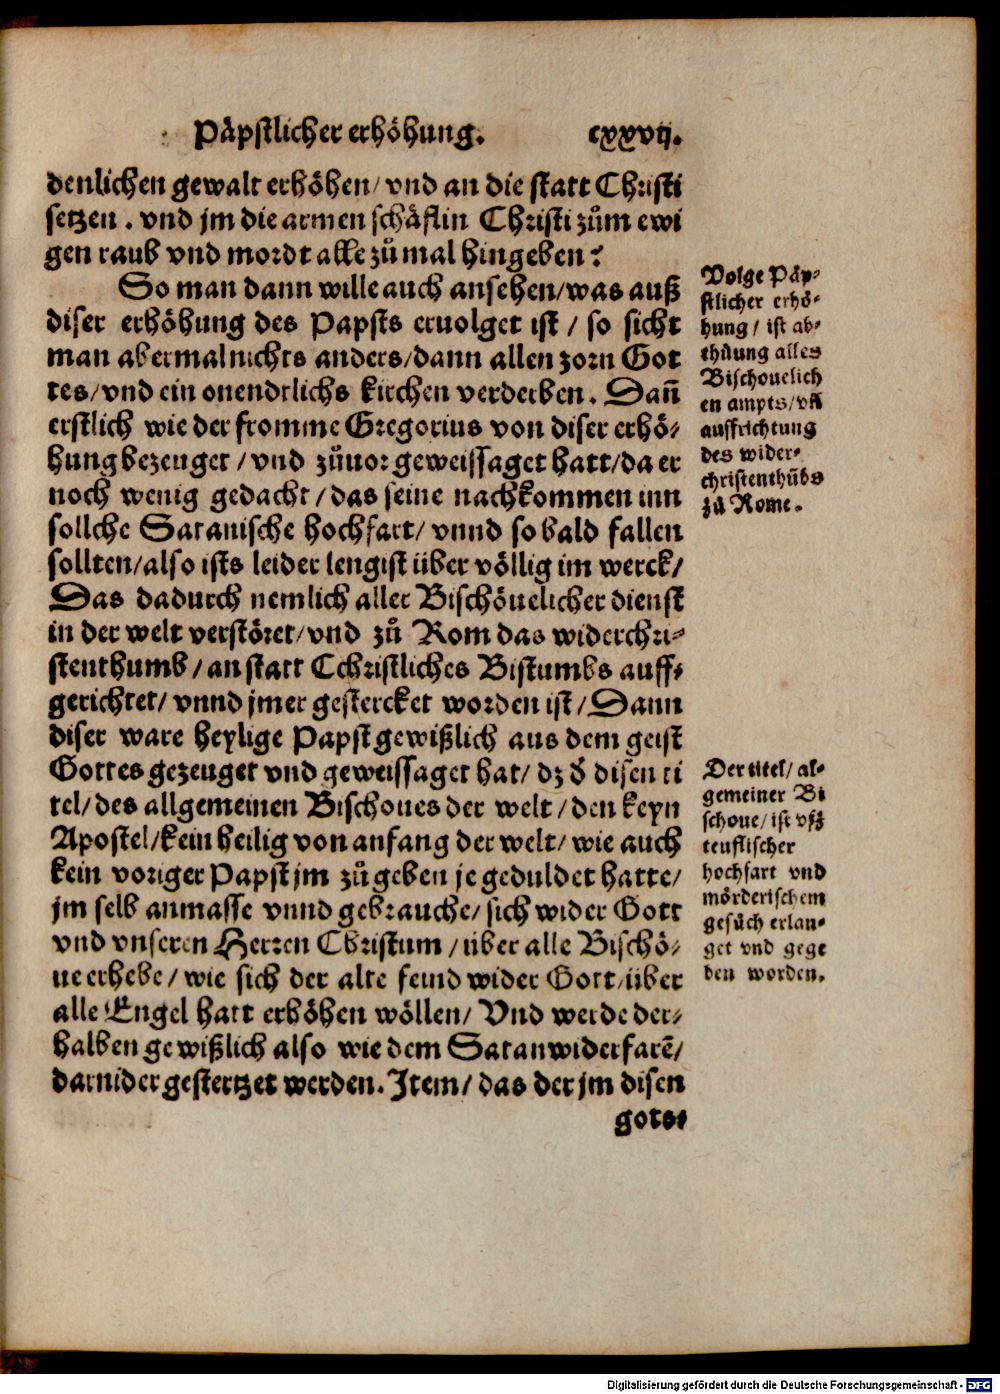 Päpstlicher erhöhung. cxxvij.
denlichen gewalt erhöhen/ vnd an die statt Christi
setzen. vnd jm die armen schäflin Christi zům ewi
gen raub vnd mordt alle zů mal hingeben?
So man dann wille auch ansehen/was auß
diser erhöhung des Papsts eruolget ist / so sicht
man abermal nichts anders/dann allen zorn Got
tes/vnd ein onendtlichs kirchen verderben. Dañ
erstlich wie der fromme Gregorius von diser erhö-
hung bezeuget /vnd zůuor geweissaget hatt/da er
noch wenig gedacht /das seine nachkommen inn
sollche Satanische hochfart/ vnnd so bald fallen
sollten/also ists leider lengist über völlig im werck/
Das dadurch nemlich aller Bischöuelicher dienst
in der welt verstöret/vnd zů Rom das widerchri-
stenthumb /an statt Cchristliches Bistumbs auff-
gerichtet/ vnnd jmer gestercket worden ist /Dann
diser ware heylige Papst gewißlich aus dem geist
Gottes gezeuget vnd geweissaget hat/ dz d̕ disen ti
tel/des allgemeinen Bischoues der welt /den keyn
Apostel/kein heilig von anfang der welt/ wie auch
kein voriger Papst jm zů geben je geduldet hatte/
jm selb anmasse vnnd gebrauche/ sich wider Gott
vnd vnseren Herren Christum /über alle Bischö-
ue erhebe/ wie sich der alte feind wider Gott/über
alle Engel hatt erhöhen wöllen/ Vnd werde der-
halben gewißlich also wie dem Satan widerfarẽ/
darnider gestertzet werden. Item/ das der jm disen
gots-
Volge Päp-
stlicher erhö-
hung/ ist ab-
thůung alles
Bischouelich
en ampts/vñ
auffrichtung
des wider-
christenthůbs
zů Rome.
Der titel/ al-
gemeiner Bi
schoue/ ist vsz
teuflischer
hochfart vnd
mörderischem
gesůch erlan-
get vnd gege
ben worden.
Digitalisierung gefördert durch die Deutsche Forschungsgemeinschaft - DFG